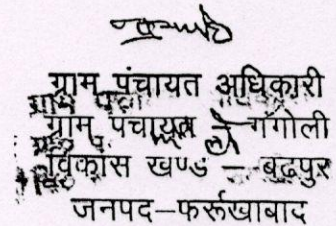 ग्राम पंचायत अधिकारी
ग्राम पंचायत – गंगोली
विकास खण्ड – बढ़पुर
जनपद–फर्रूखाबाद